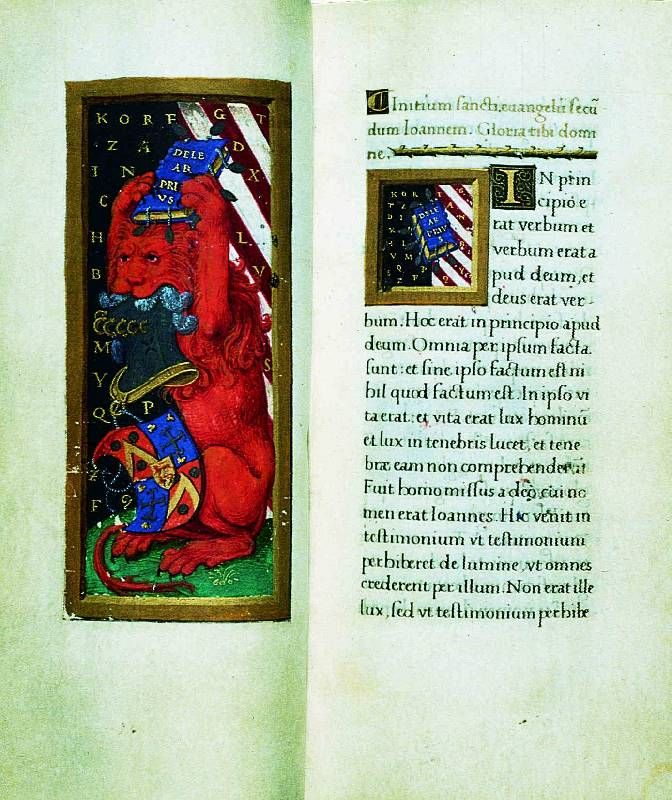 K O R F G T
Z A D
I N X
C
H L V
B
ccccc
M
Y S
Q P
Z
F 9
DELE
AR
PRI
VS
CInitium sancti euangelii secū
dum Ioannem. Gloria tibi domi
ne.
IN prin
cipio e
rat verbum et
verbum erat a
pud deum, et
deus erat ver-
bum. Hoc erat in principio apud
deum. Omnia per ipsum facta
sunt: et sine ipso factum est ni
hil quod factum est. In ipso vi
ta erat: et vita erat lux hominū
et lux in tenebris lucet, et tene
bræ eam non comprehenderūt
Fuit homo missus a deo, cui no
men erat Ioannes. Hic venit in
testimonium vt testimonium
perhiberet de lumine, vt omnes
crederent per illum. Non erat ille
lux, sed vt testimonium perhibe
KOR
DELE
AR
PRIVS